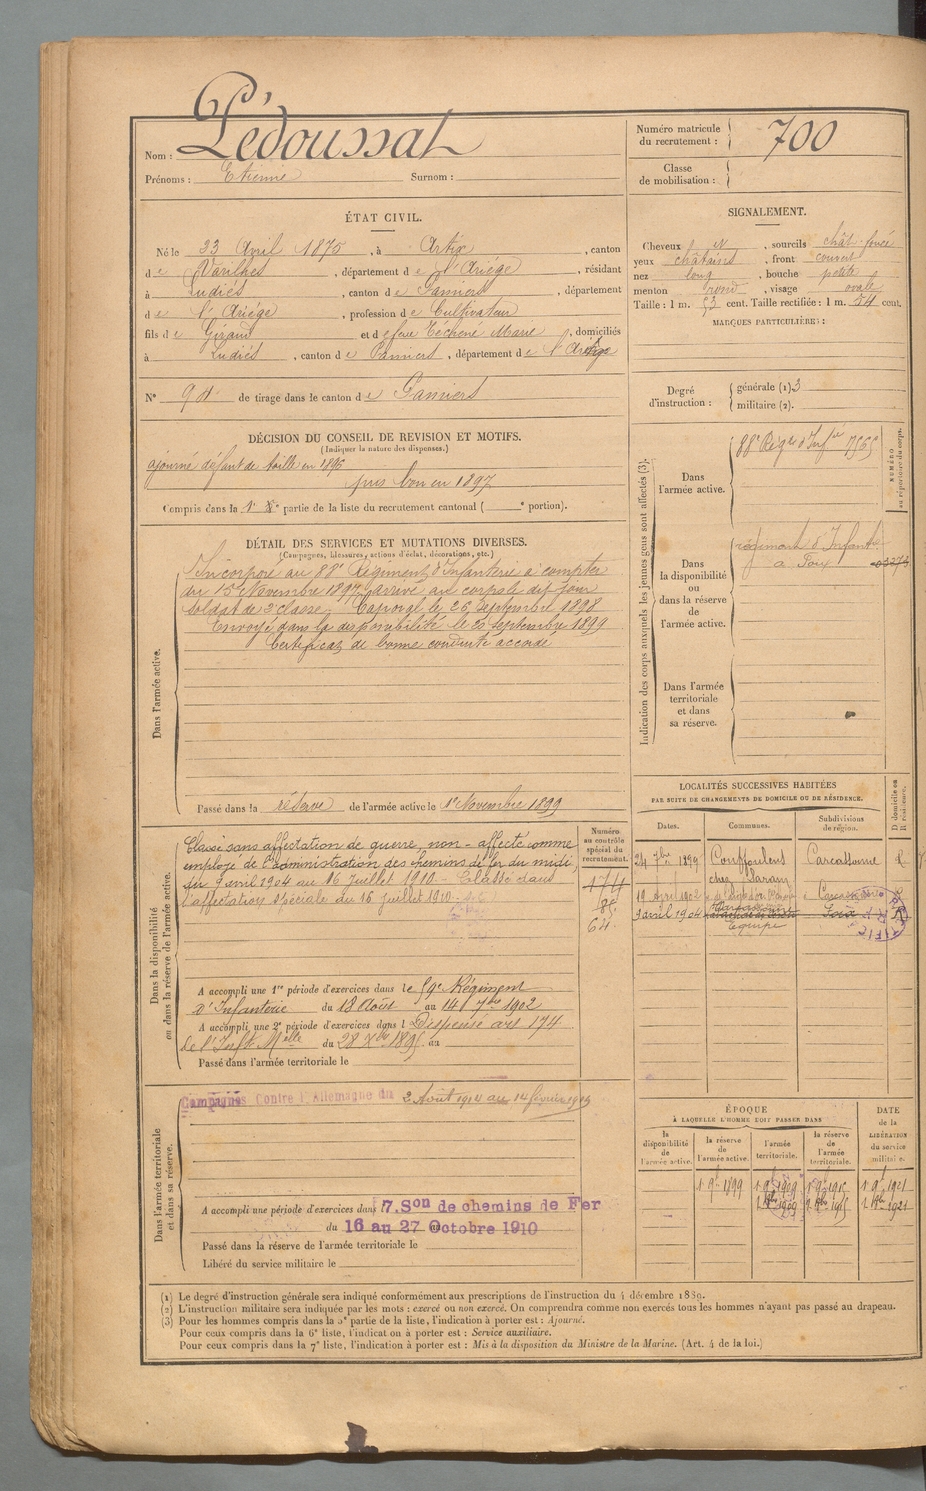 Nom : Pédoussat
Prénoms : Etienne Surnom :
Numéro matricule du recrutement : 700
Classe de mobilisation :
ÉTAT CIVIL.
Né le 23 Avril 1875, à Artix, canton
de Varilhes, département de l'Ariége, résidant
à Ludiés, canton de Pamiers, département
de l'Ariége, profession de Cultivateur
fils de Giraud et de feue Téchené Marie, domiciliés
à Ludiés, canton de Pamiers, département de l'Ariége
N° 94 de tirage dans le canton de Pamiers
SIGNALEMENT.
Cheveux N, sourcils chât. foncé
yeux châtains, front couvert
nez long, bouche petite
menton rond, visage ovale
Taille : 1 m. 53 cent. Taille rectifiée : 1 m. 54 cent.
MARQUES PARTICULIÈRES :
Degré d'instruction : générale (1) 3
militaire (2).
DÉCISION DU CONSEIL DE REVISION ET MOTIFS.
(Indiquer la nature des dispenses.)
ajourné défaut de taille en 1896
pris bon en 1897
Compris dans la 1e partie de la liste du recrutement cantonal ( e portion).
DÉTAIL DES SERVICES ET MUTATIONS DIVERSES.
(Campagnes, blessures, actions d'éclat, décorations, etc.)
Dans l'armée active.
Incorporé au 88e Régiment d'Infanterie à compter
du 15 Novembre 1897, arrivé au corps le dit jour
soldat de 2e classe. Caporal le 26 Septembre 1898
Envoyé dans la disponibilité le 20 Septembre 1899
Certificat de bonne conduite accordé
Passé dans la réserve de l'armée active le 1er Novembre 1899
Indication des corps auxquels les jeunes gens sont affectés (3).
NUMÉRO au répertoire du corps.
Dans l'armée active.
88e Régt d'Infie 7565
Dans la disponibilité ou dans la réserve de l'armée active.
régiment d'Infantie
à Foix
Dans l'armée territoriale et dans sa réserve.
LOCALITÉS SUCCESSIVES HABITÉES
PAR SUITE DE CHANGEMENTS DE DOMICILE OU DE RÉSIDENCE.
Dates. Communes. Subdivisions de région. D. domicile ou R. résidence.
24 7bre 1899 Couffoulens Carcassonne R
19 Avril 1902
9 avril 1904 Foix
Equipe
Dans la disponibilité ou dans la réserve de l'armée active.
Numéro au contrôle spécial du recrutement.
174
64
Classé sans affectation de guerre, non-affecté comme
employé de l'administration des chemins de fer du midi,
du 9 avril 1904 au 16 Juillet 1910. Classé dans
l'affectation spéciale du 16 juillet 1910.
A accompli une 1re période d'exercices dans le 59e Régiment
d'Infanterie du 18 Août au 14 7bre 1902
A accompli une 2e période d'exercices dans l Dispensé art 174
de l'Inst. Melle du 28 Xbre 1895 au
Passé dans l'armée territoriale le
Dans l'armée territoriale et dans sa réserve.
Campagnes Contre l'Allemagne du 2 Août 1914 au 14 février 1919
A accompli une période d'exercices dans 7.Son de chemins de Fer
du 16 au 27 Octobre 1910
Passé dans la réserve de l'armée territoriale le
Libéré du service militaire le
ÉPOQUE
À LAQUELLE L'HOMME DOIT PASSER DANS
la disponibilité de l'armée active. la réserve de l'armée active. l'armée territoriale. la réserve de l'armée territoriale. DATE de la LIBÉRATION du service militaire.
1 9bre 1899 1 9bre 1909 1 9bre 1915 1 9bre 1921
(1) Le degré d'instruction générale sera indiqué conformément aux prescriptions de l'instruction du 4 décembre 1889.
(2) L'instruction militaire sera indiquée par les mots : exercé ou non exercé. On comprendra comme non exercés tous les hommes n'ayant pas passé au drapeau.
(3) Pour les hommes compris dans la 5e partie de la liste, l'indication à porter est : Ajourné.
Pour ceux compris dans la 6e liste, l'indication à porter est : Service auxiliaire.
Pour ceux compris dans la 7e liste, l'indication à porter est : Mis à la disposition du Ministre de la Marine. (Art. 4 de la loi.)